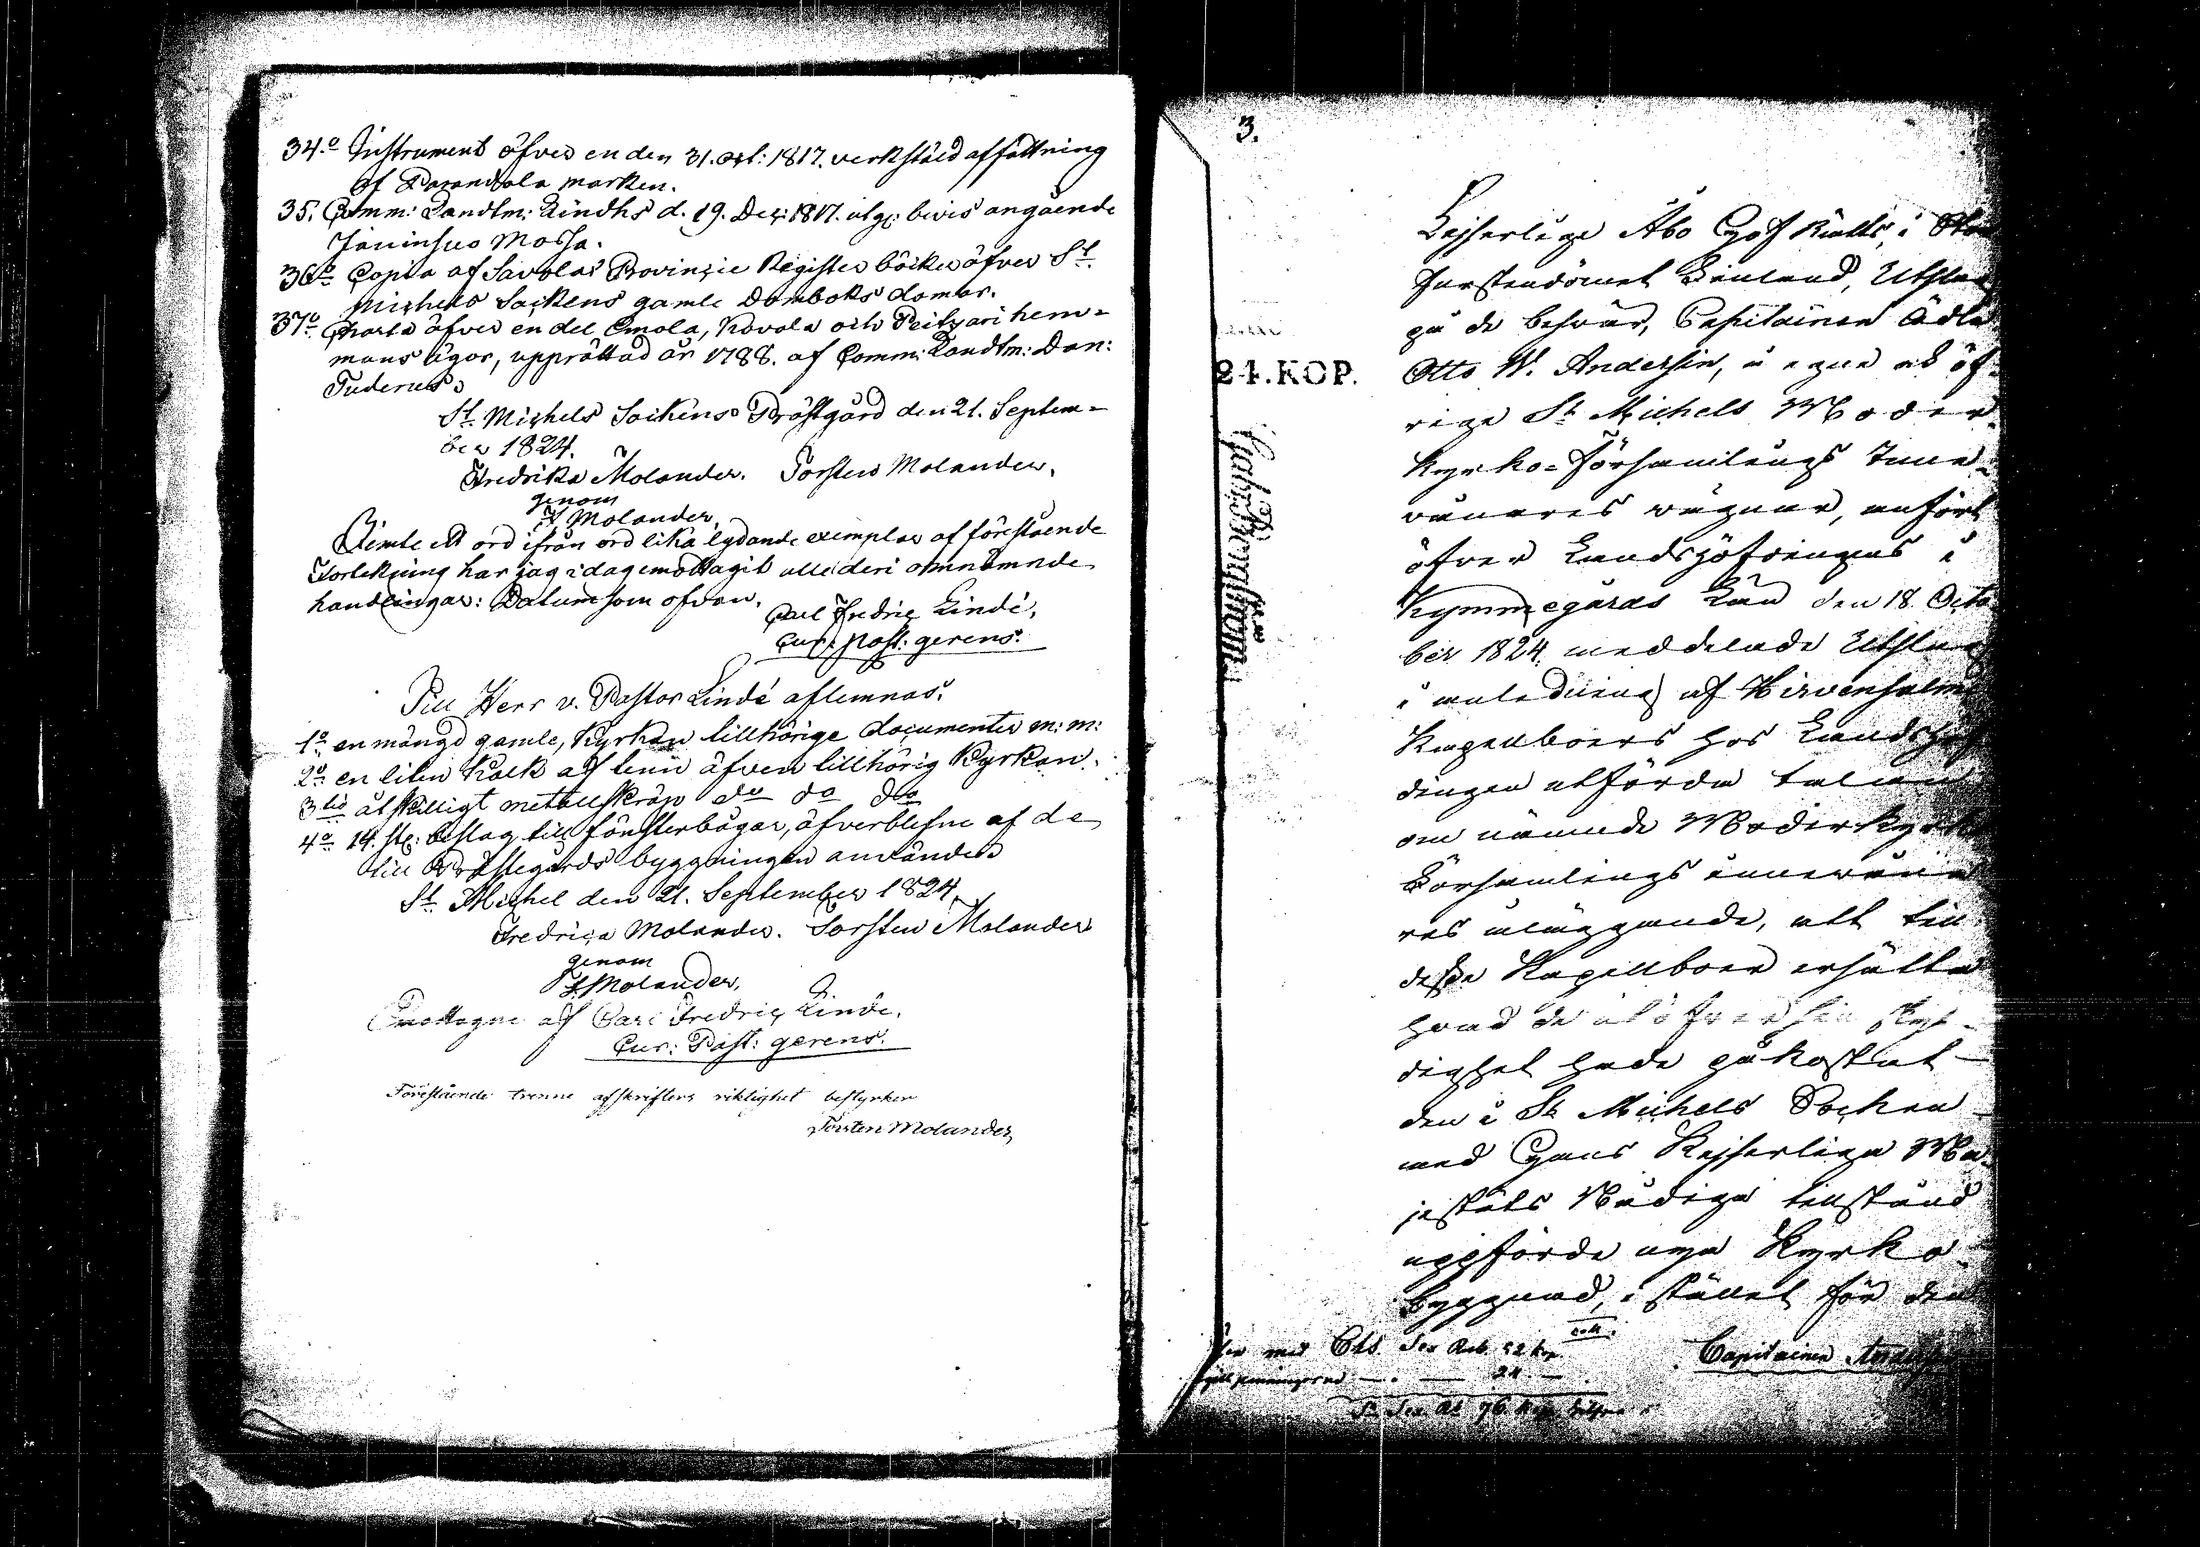 34.o Instrument öfver en den 31. Oct: 1817. verkstäld affattning
af Parandsola marken.
35. Comm: Landtm: Lindhs d. 19. Dec: 1817. utgr: bevis angående
Mossa.
36o Copia af Savolax Provincie Register böcker öfver St.
Michels Sockens gamle Domboks domar.
37o Charta öfver en del Emola, Kovola och Peitzari hem=
mans ägor, upprättad år 1788. af Comm: Landtm: Dan:
Tuderus.
St. Michels Sockens Prästgård den 21. Septem=
ber 1824.
Fredrika Molander. Torsten Molander.
genom
T Molander.
Ett ord ifrån ord lika lydande exemplar af förestående
Förtekning har jag i dag emottagit alla deri omnämnde
handlingar: Datum som ofvan.
Carl Fredric Lindé.
Cur: Past: gerens.
Till Herr v. Pastor Lindé aflemnas.
1o en mängd gamle, Kyrkan tillhörige documenter m: m:
2o en liten Kalk af tenn äfven tillhörig Kyrkan.
3tio åtskilligt metallskräp do do do
4o 14. st: beslag till fönsterbågar, öfverblefne af de
till Prästegårds byggningen använde
St. Michel den 21. September 1824.
Fredrica Molander. Torsten Molander
genom
T Molander.
Emottagne af Carl Fredric Linde.
Cur: Past: gerens.
Förestående trenne afskrifters riktighet bestyrker
Torsten Molander
3.
24.KOP.
Kejserlige Åbo Hof Rätts, i Stor
Furstendömet Finland, Utslag
på de besvär, Capitainen Ädle
Otto W. Andersin, å egne och öf-
rige St Michels Moder
kyrko=Församlings Inne-
vånares vägnar, anfört
öfver Landshöfdingens i
Kymmenegårds Län den 18. Octo
ber 1824. meddelade Utslag
i anledning af Hirvensalmi
Kapellboers hos Landshöf
dingen utförda talan
om nämnde Moderkyrko
Församlings innevåna
res åläggande, att till
desse Kapellboer ersätta
hvad de utöfver sin skyl-
dighet hade påkostat
den i St Michels Socken
med Hans Kejserliga Ma-
jestäts Nådiga tillstånd
uppförda nya Kyrko-
byggnad, i stället för den
Capitainen